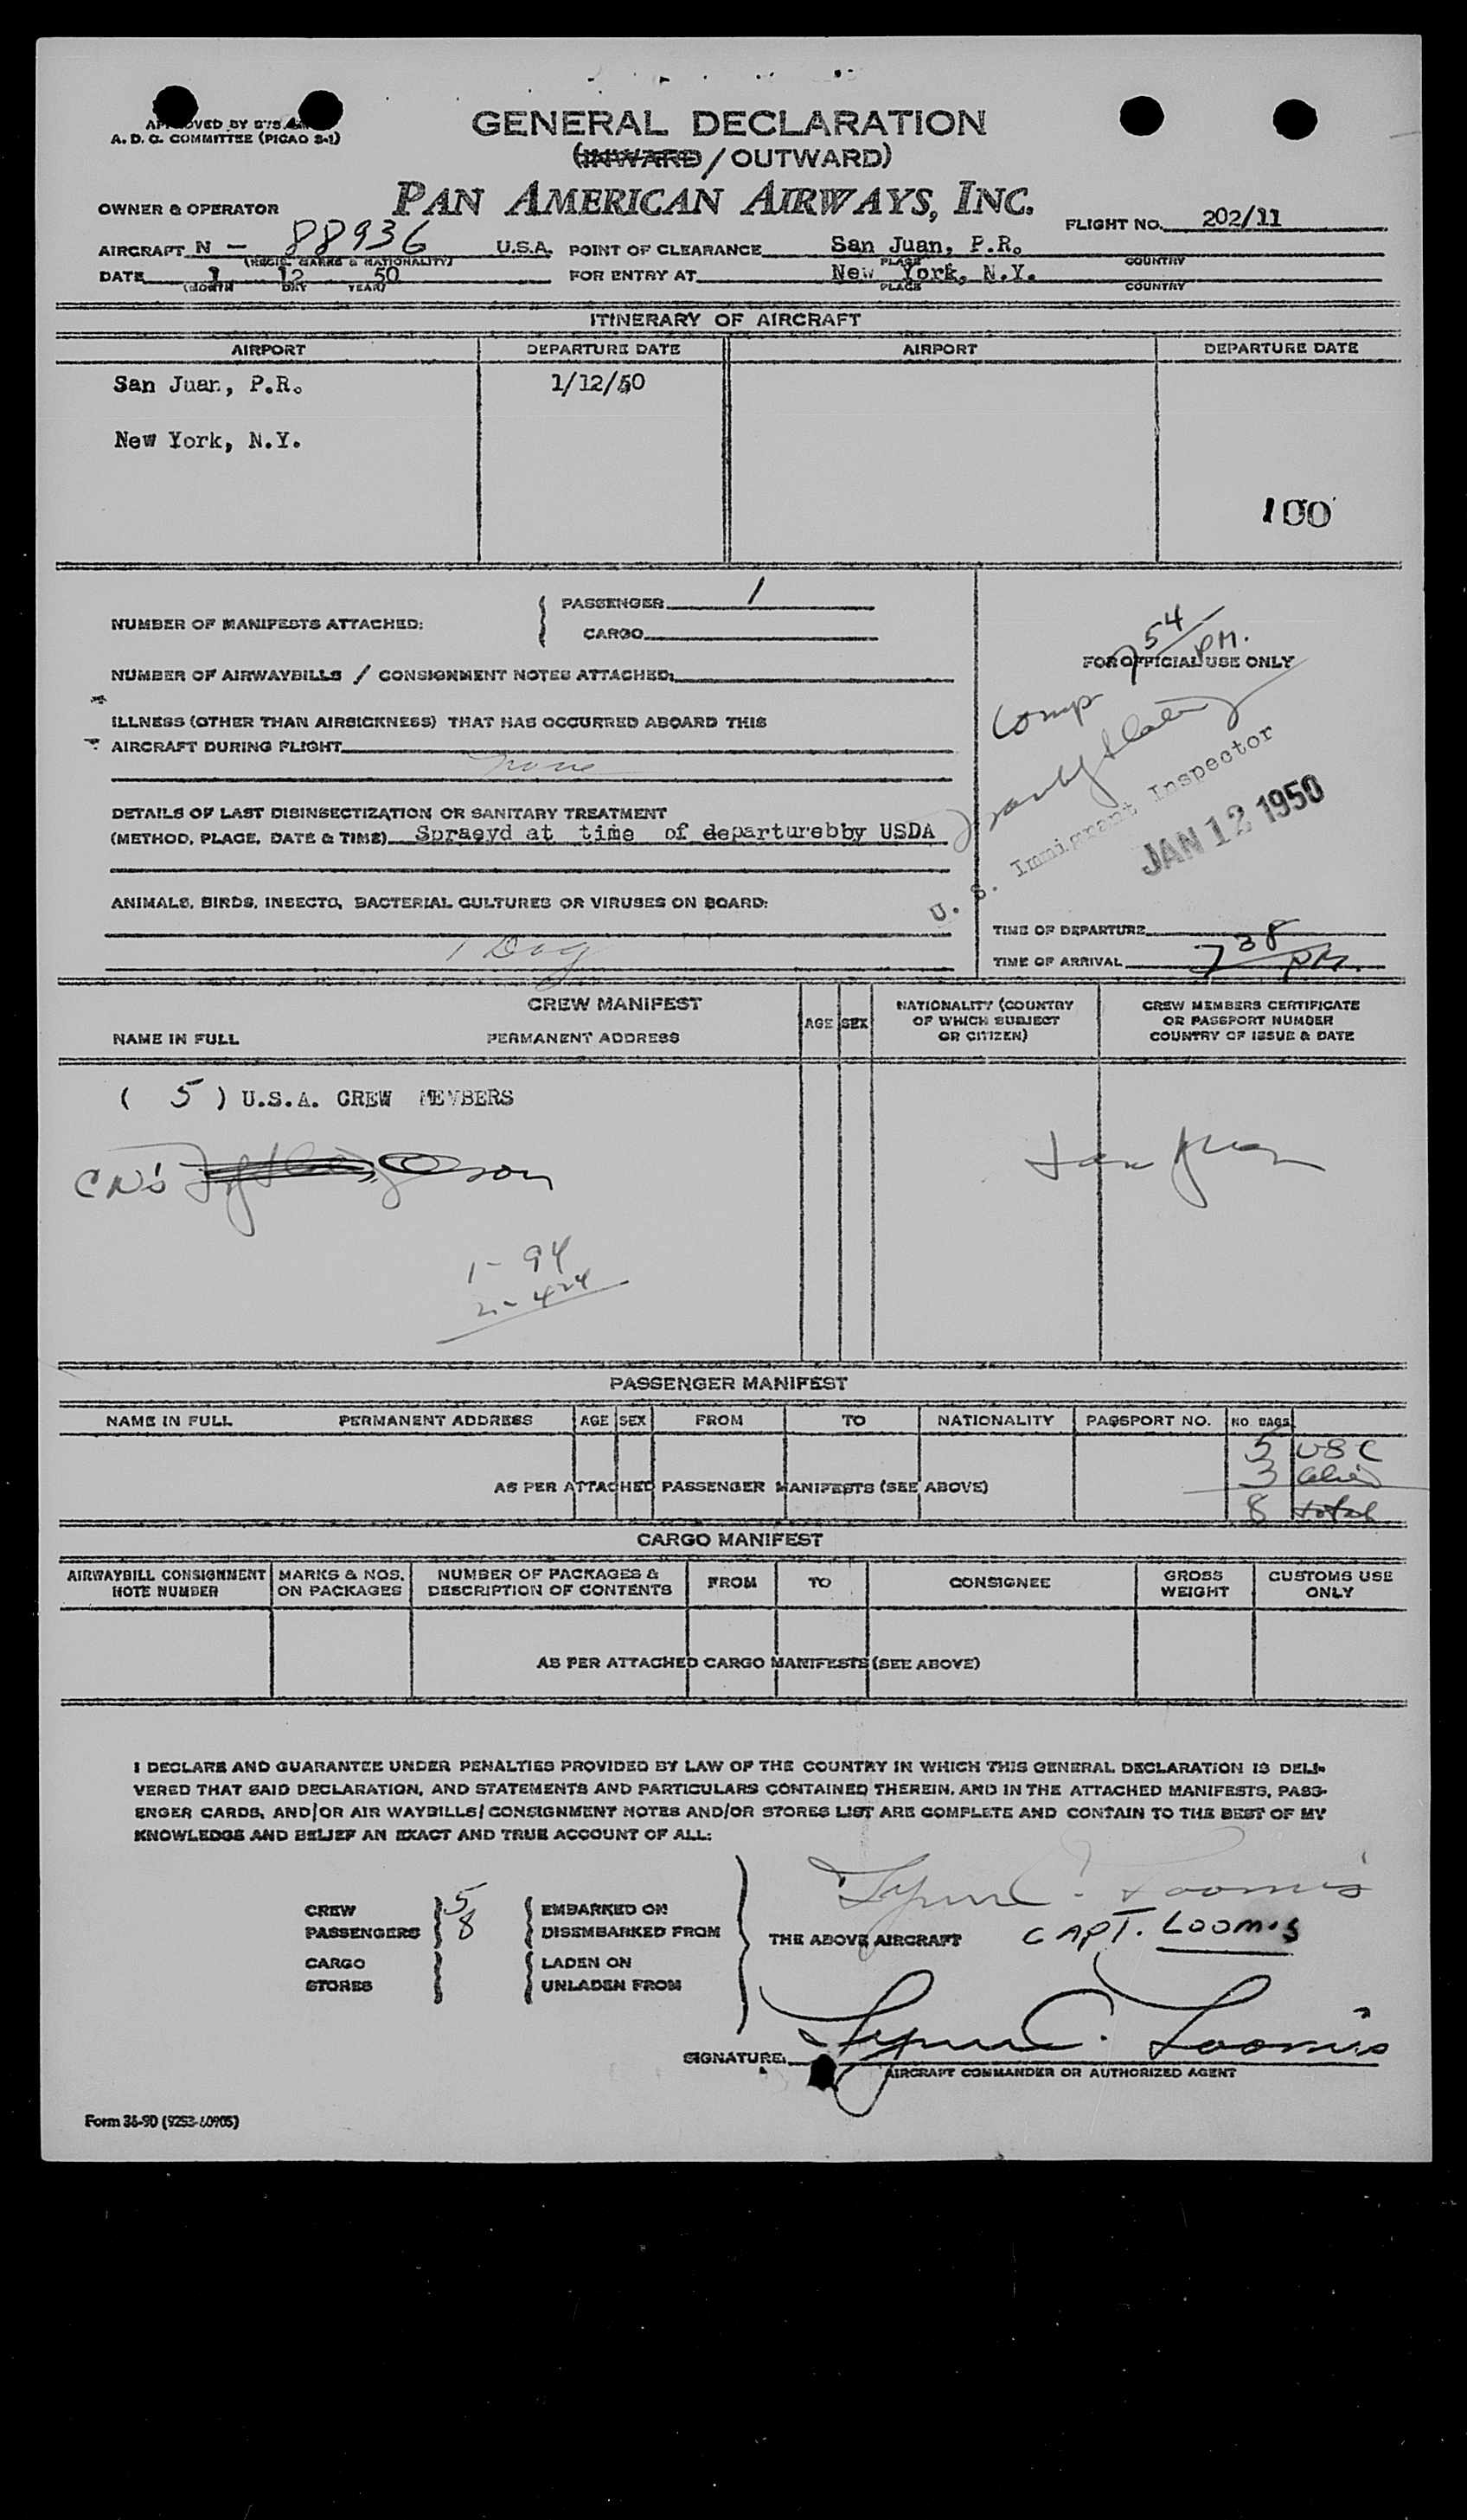 APPROVED BY
A. D. C. COMMITTEE (PICAO S-1)
GENERAL DECLARATION
(INWARD / OUTWARD)
PAN AMERICAN AIRWAYS, INC.
OWNER & OPERATOR
FLIGHT NO. 202/11
AIRCRAFT N - 88936 U.S.A. POINT OF CLEARANCE San Juan, P.R.
(REGIS. MARKS & NATIONALITY) PLACE COUNTRY
DATE 1 12 50 FOR ENTRY AT New York, N.Y.
(MONTH DAY YEAR) PLACE COUNTRY
ITINERARY OF AIRCRAFT
AIRPORT DEPARTURE DATE AIRPORT DEPARTURE DATE
San Juan, P.R. 1/12/50
New York, N.Y.
100
NUMBER OF MANIFESTS ATTACHED: PASSENGER 1
CARGO
754 PM.
FOR OFFICIAL USE ONLY
NUMBER OF AIRWAYBILLS / CONSIGNMENT NOTES ATTACHED:
Comp
ILLNESS (OTHER THAN AIRSICKNESS) THAT HAS OCCURRED ABOARD THIS
AIRCRAFT DURING FLIGHT
none
U. S. Immigrant Inspector
JAN 12 1950
DETAILS OF LAST DISINSECTIZATION OR SANITARY TREATMENT
(METHOD, PLACE, DATE & TIME) Spraeyd at time of departurebby USDA
ANIMALS, BIRDS, INSECTS, BACTERIAL CULTURES OR VIRUSES ON BOARD:
1 Dog
TIME OF DEPARTURE
TIME OF ARRIVAL 738 PM.
CREW MANIFEST
NAME IN FULL PERMANENT ADDRESS AGE SEX
NATIONALITY (COUNTRY
OF WHICH SUBJECT
OR CITIZEN)
CREW MEMBERS CERTIFICATE
OR PASSPORT NUMBER
COUNTRY OF ISSUE & DATE
( 5 ) U.S.A. CREW MEMBERS
San Juan
1- 94
2- 424
PASSENGER MANIFEST
NAME IN FULL PERMANENT ADDRESS AGE SEX FROM TO NATIONALITY PASSPORT NO. NO. BAGS
5 USC
3 alien
AS PER ATTACHED PASSENGER MANIFESTS (SEE ABOVE)
8 total
CARGO MANIFEST
AIRWAYBILL CONSIGNMENT
NOTE NUMBER
MARKS & NOS.
ON PACKAGES
NUMBER OF PACKAGES &
DESCRIPTION OF CONTENTS
FROM TO CONSIGNEE
GROSS
WEIGHT
CUSTOMS USE
ONLY
AS PER ATTACHED CARGO MANIFESTS (SEE ABOVE)
I DECLARE AND GUARANTEE UNDER PENALTIES PROVIDED BY LAW OF THE COUNTRY IN WHICH THIS GENERAL DECLARATION IS DELI-
VERED THAT SAID DECLARATION, AND STATEMENTS AND PARTICULARS CONTAINED THEREIN, AND IN THE ATTACHED MANIFESTS, PASS-
ENGER CARDS, AND/OR AIR WAYBILLS/CONSIGNMENT NOTES AND/OR STORES LIST ARE COMPLETE AND CONTAIN TO THE BEST OF MY
KNOWLEDGE AND BELIEF AN EXACT AND TRUE ACCOUNT OF ALL:
Lynn C. Loomis
CREW 5 EMBARKED ON
PASSENGERS 8 DISEMBARKED FROM
THE ABOVE AIRCRAFT CAPT. LOOMIS
CARGO LADEN ON
STORES UNLADEN FROM
SIGNATURE: Lynn C. Loomis
AIRCRAFT COMMANDER OR AUTHORIZED AGENT
Form 36-9D (9253-60905)